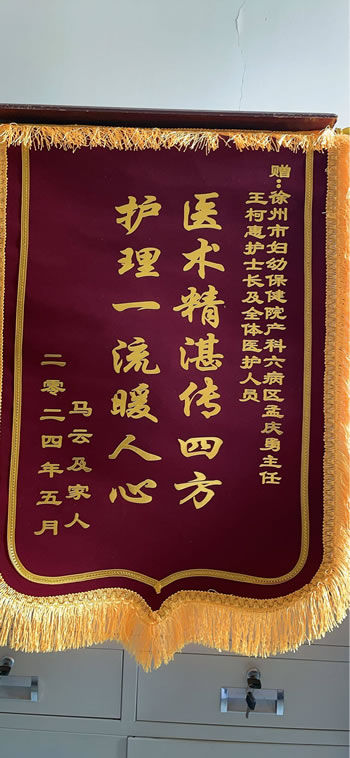 赠：徐州市妇幼保健院产科六病区孟庆勇主任
王柯惠护士长及全体医护人员
医术精湛传四方
护理一流暖人心
马云及家人
二零二四年五月